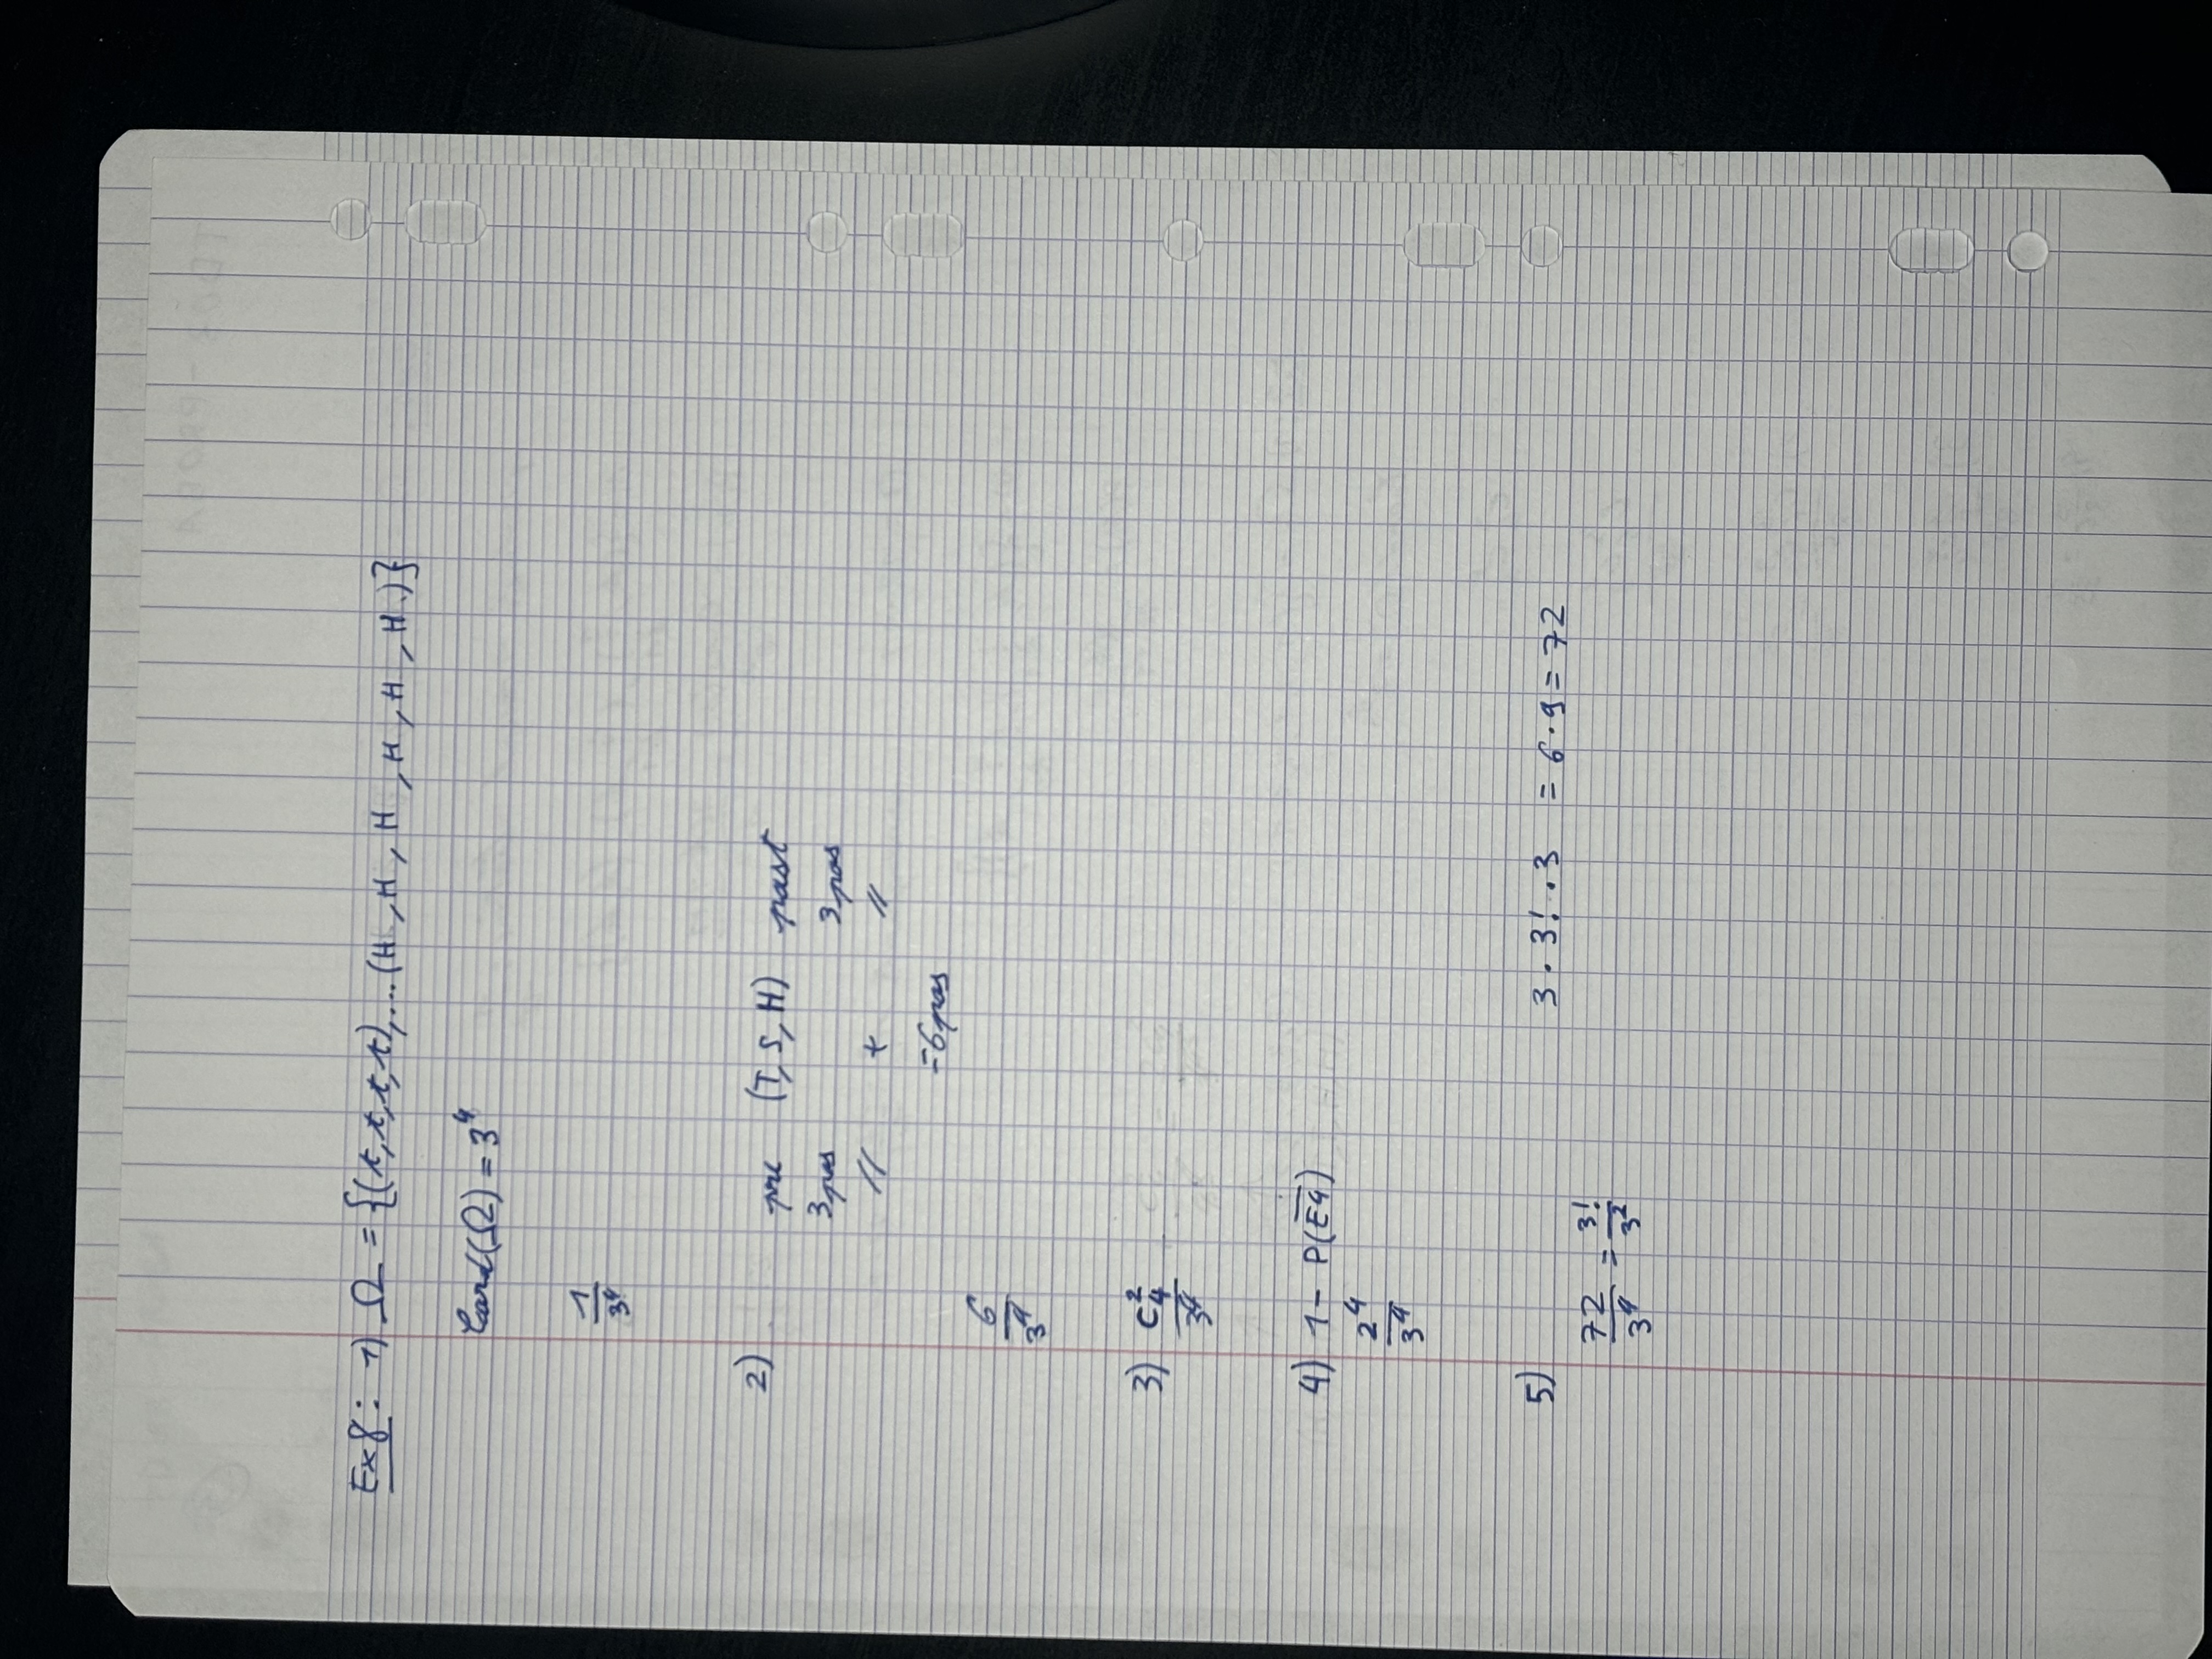 Ex8: 1) Ω = {(t,t,t,t),...(H,H,H,H,H,H)}
Card(Ω) = 3⁴
1/3⁴
2) (T,S,H)
3pos 3pos
// + //
=6pos
6/3⁴
3) C₄²/3⁴
4) 1- P(E̅4̅)
2⁴/3⁴
5) 3.3!.3 = 6.9=72
72/3⁴ = 3!/3²